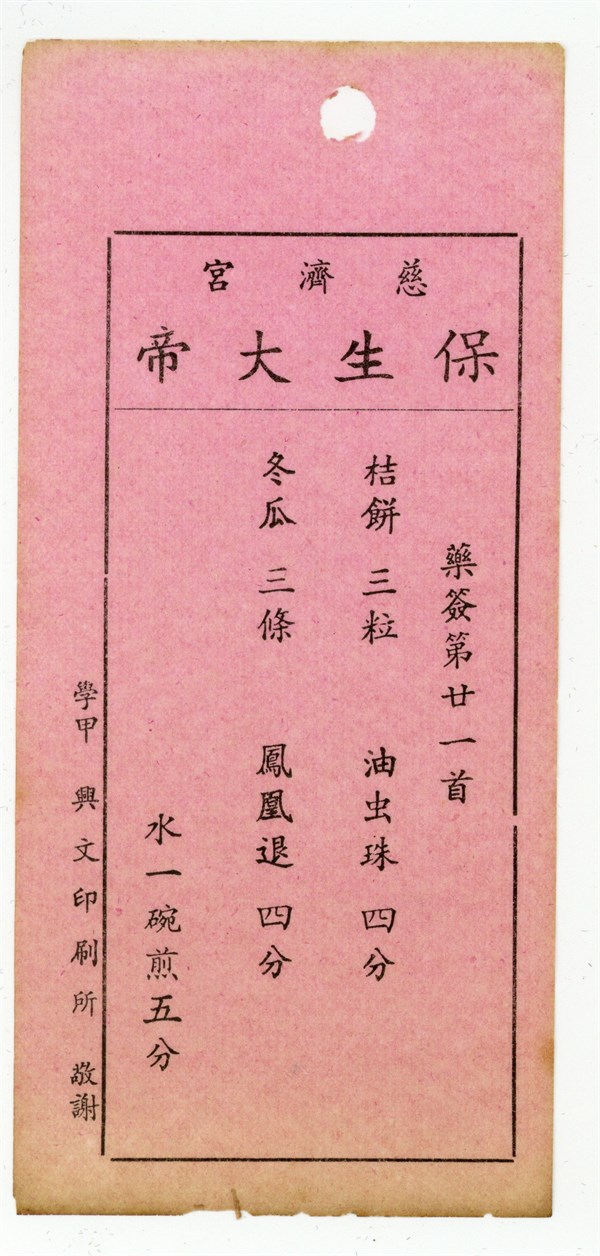 慈濟宮
保生大帝
藥簽第廿一首
桔餅 三粒 油虫珠 四分
冬瓜 三條 鳳凰退 四分
水一碗煎五分
學甲 興文印刷所 敬謝